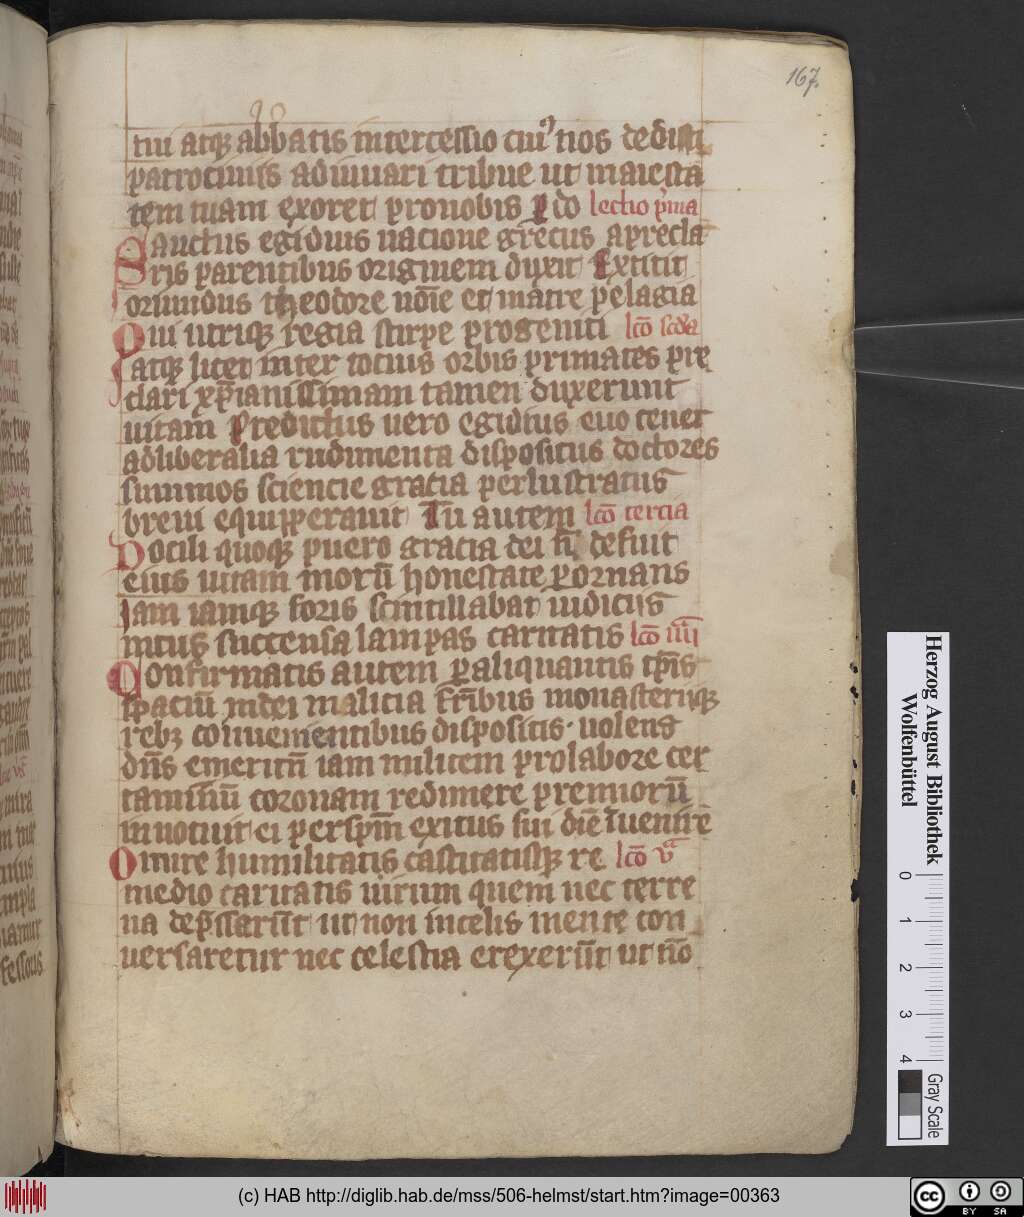 167
tui atqꝫ abbatis intercessio cuiꝰ nos dedisti
patrociniis adiuuari tribue ut maiesta
tem tuam exoret pro nobis ꝑ do lectio pͥma
Sanctus egidius nacione grecus a precla
ris parentibus originem duxit Extitit
oriundus theodore noīe et matre pelagia
Qui utriqꝫ regia stirpe progeniti lcō scd̄a
atqꝫ licet inter tocius orbis primates pre
clari xp̄ianissimam tamen duxerunt
uitam Predictus uero egidius euo tener
ad liberalia rudimenta dispositus doctores
summos sciencie gratia perlustratus
breui equipꝑerauit Tu autem lcō tercia
Docili quoqꝫ puero gracia dei n̄ defuit
eius uitam morū honestate ꝑornans
Iam iamqꝫ foris scintillabat iudiciis
intus succensa lampas caritatis lcō iiiiᵃ
Confirmatis autem ꝑ aliquantis tp̄is
spaciū in dei malicia fr̄ibus monasteriiqꝫ
rebꝫ conuenientibus dispositis· uolens
dn̄s emeritū iam militem pro labore cer
taminū coronam redimere premiorū
innotuit ei per spm̄ exitus sui diē īuenire
Omire humilitatis castitatisqꝫ re lcō vᵃ
medio caritatis uirum quem nec terre
na dep̄ssarūt ut non in celis mente con
uersaretur nec celestia erexerūt ut nō
Herzog August Bibliothek
Wolfenbüttel
0
1
2
3
4
Gray Scale
(c) HAB http://diglib.hab.de/mss/506-helmst/start.htm?image=00363
cc
BY SA